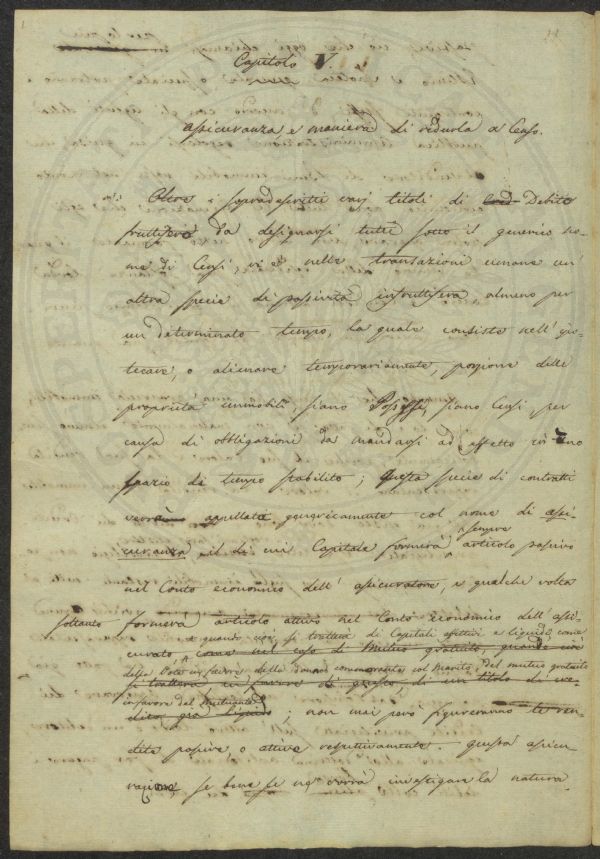 Capitolo V.
assicuranza e maniera di ridurla a Censo.
Oltre i sopradescritti varj titoli di Cred Debito
fruttifero da designarsi tutti sotto il generico no-
me di Censi, vi è nelle transazioni umane un'
altra specie di passività infruttifera, almeno per
un determinato tempo, la quale consiste nell' ipo-
tecare, o alienare temporariamente, porzione delle
proprietà immobili siano Possessi, siano Censi per
causa di obbligazioni da mandarsi ad effetto in uno
spazio di tempo stabilito; questa specie di contratti
appellata genericamente col nome di assi-
curanza il di cui Capitale formerà sempre articolo passivo
nel Conto economico dell' assicuratore, e qualche volta
soltanto formerà articolo attivo nel Conto economico dell' assi-
e quando cioè, si tratterà di Capitali effettivi e liquidi, come
curato, come nel caso di Mutuo gratuito, quando cioè
della Dote in favore della donna convivente col Marito, del mutuo gratuito
si tratterà in favore di questo, di un titolo di cre-
in favore del Mutuante
dito già liquido; non mai però figureranno le ren-
dite passive, o attive respettivamente. questa assicu-
razione, se bene se ne vorrà investigare la natura